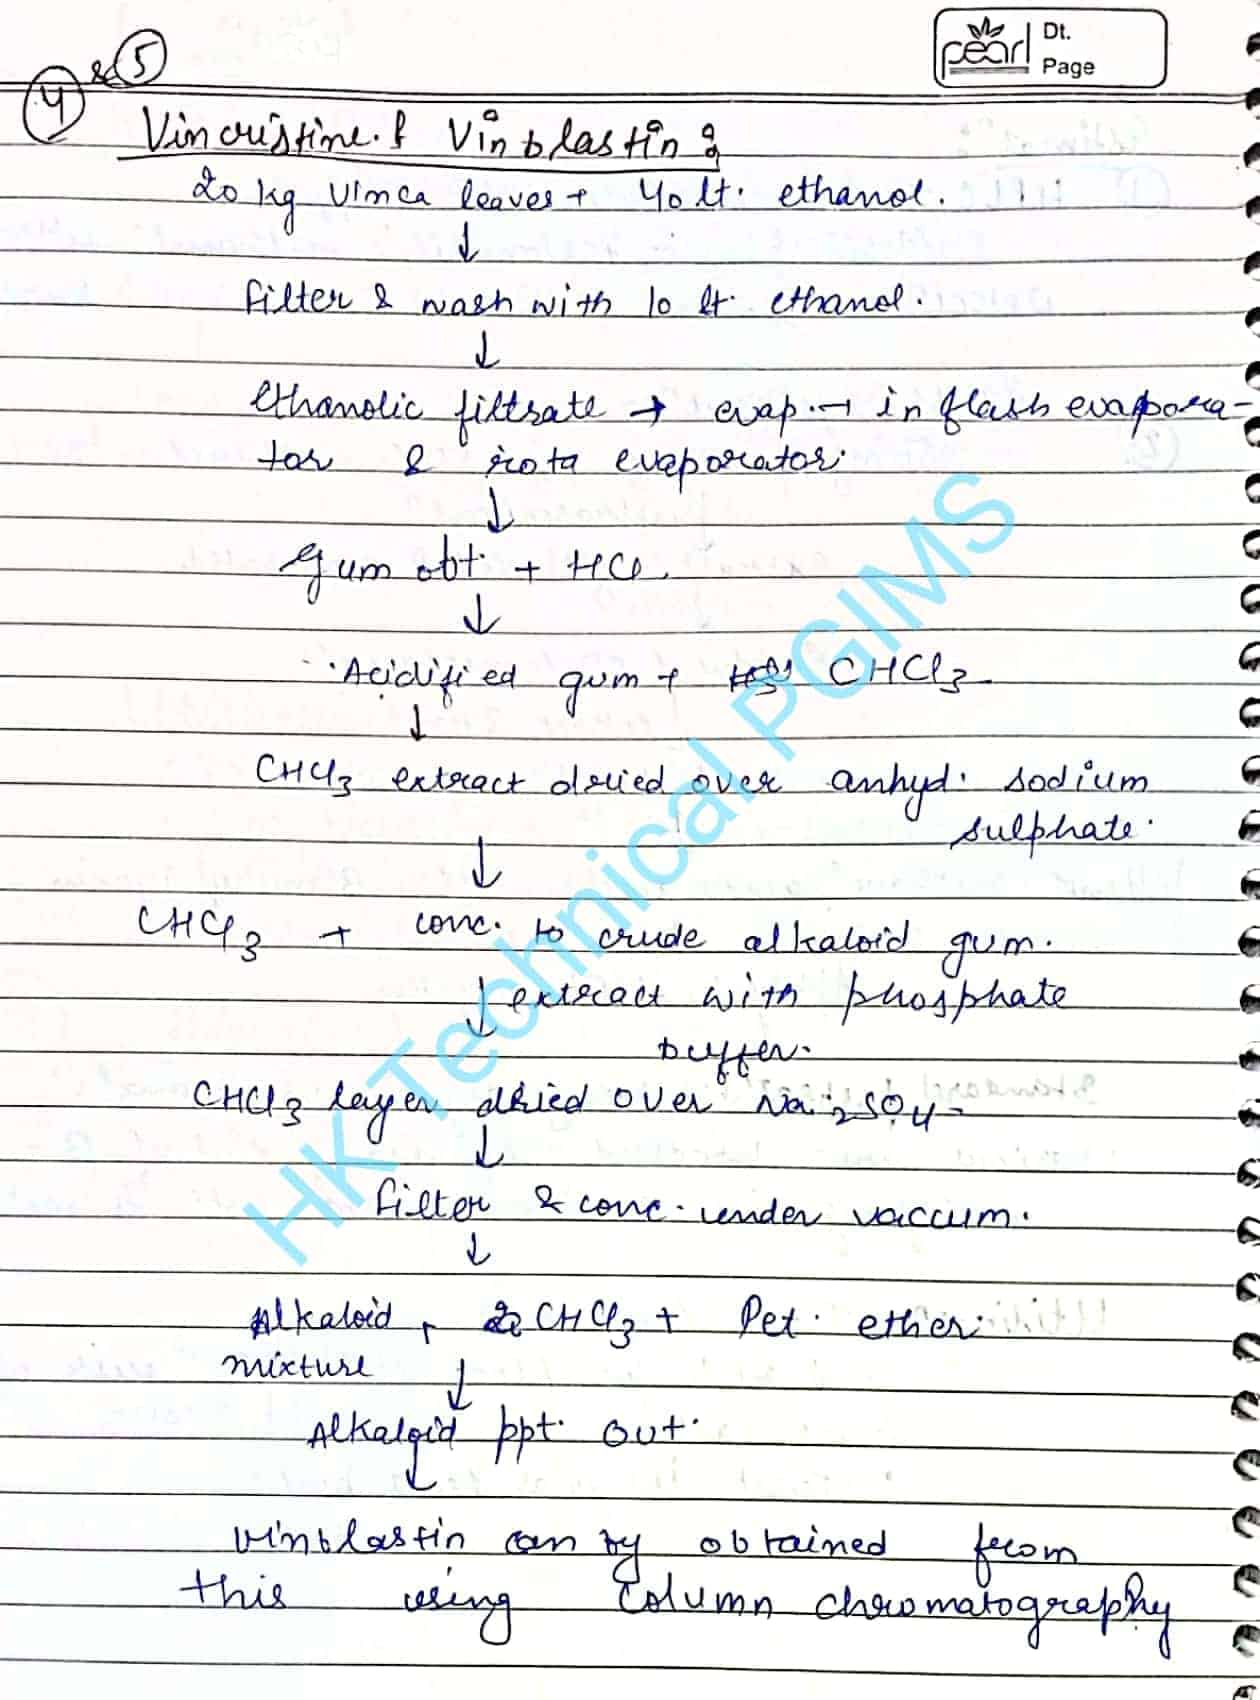 pearl Dt.
Page
4 & 5
Vincristine & Vinblastin :
20 kg Vinca leaves + 40 lt. ethanol.
↓
filter & wash with 10 lt. ethanol.
↓
Ethanolic filtrate → evap. → in flash evapora-
tor & rota evaporator.
↓
Gum obt. + HCl.
↓
Acidified gum + CHCl3
↓
CHCl3 extract dried over anhyd. sodium
sulphate.
↓
CHCl3 + conc. to crude alkaloid gum.
↓ extract with phosphate
buffer.
CHCl3 layer dried over Na2SO4
↓
filter & conc. under vaccum.
↓
Alkaloid CHCl3 + Pet. ether.
mixture
↓
Alkaloid ppt. out.
↓
Vinblastin can by obtained from
this using Column chromatography
HK Technical PGIMS